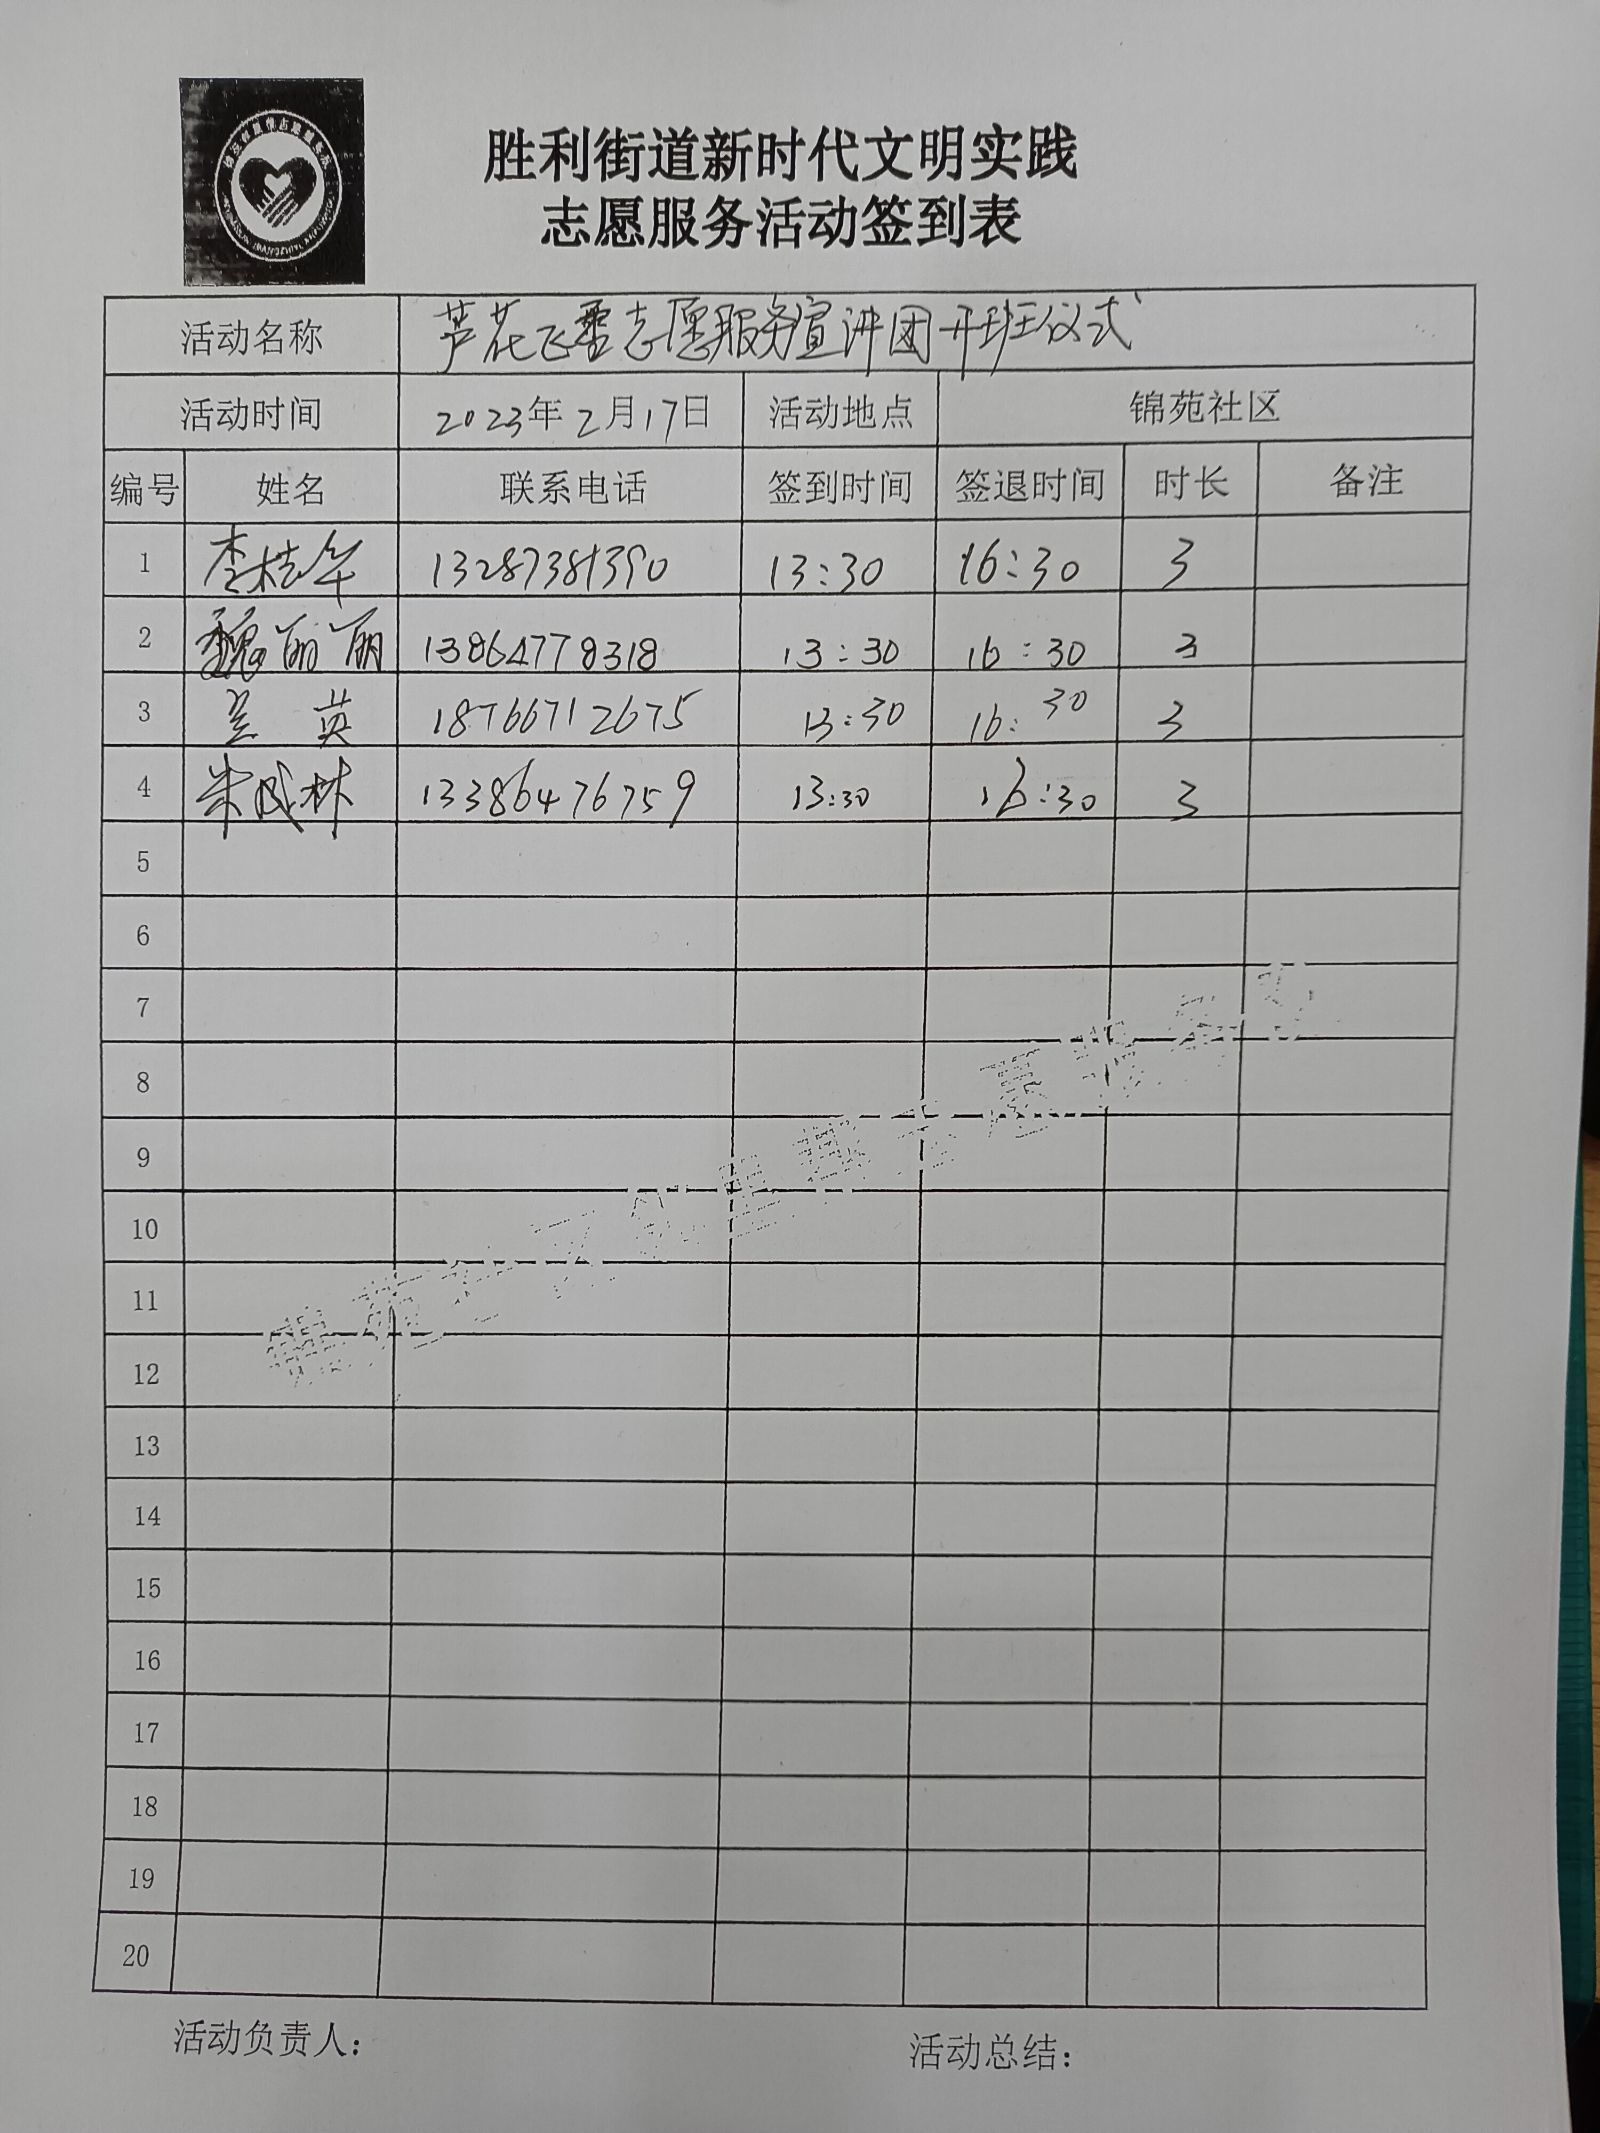 胜利街道新时代文明实践
志愿服务活动签到表
活动名称 芦花飞雪志愿服务宣讲团开班仪式
活动时间 2023年2月17日 活动地点 锦苑社区
编号 姓名 联系电话 签到时间 签退时间 时长 备注
1 李桂华 13287381390 13:30 16:30 3
2 魏丽丽 13864778318 13:30 16:30 3
3 兰英 18766712675 13:30 16:30 3
4 朱成林 13386476759 13:30 16:30 3
5
6
7
8
9
10
11
12
13
14
15
16
17
18
19
20
活动负责人: 活动总结: